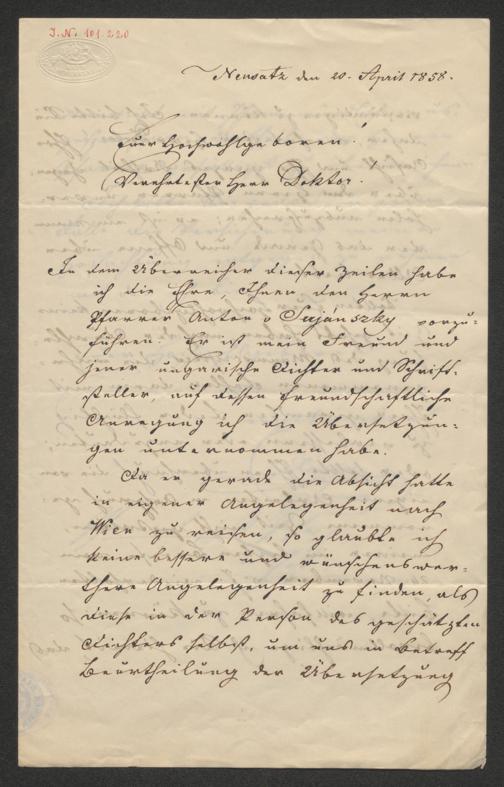 J. N. 101.220
Neusatz den 20. April 1858.
Euer Hochwohlgeboren!
Verehrtester Herr Doktor.
In dem Überreicher dieser Zeilen habe
ich die Ehre, Ihnen den Herrn
Pfarrer Anton v Sujánszky vorzu-
führen. Er ist mein Freund und
jener ungarische Dichter und Schrift-
steller, auf dessen freundschaftliche
Anregung ich die Übersetzun-
gen unternommen habe.
Da er gerade die Absicht hatte
in eigener Angelegenheit nach
Wien zu reisen, so glaubte ich
keine bessere und wünschenswer-
there Angelegenheit zu finden, als
diese in der Person des geschätzten
Dichters selbst, um uns in Betreff
Beurtheilung der Übersetzung